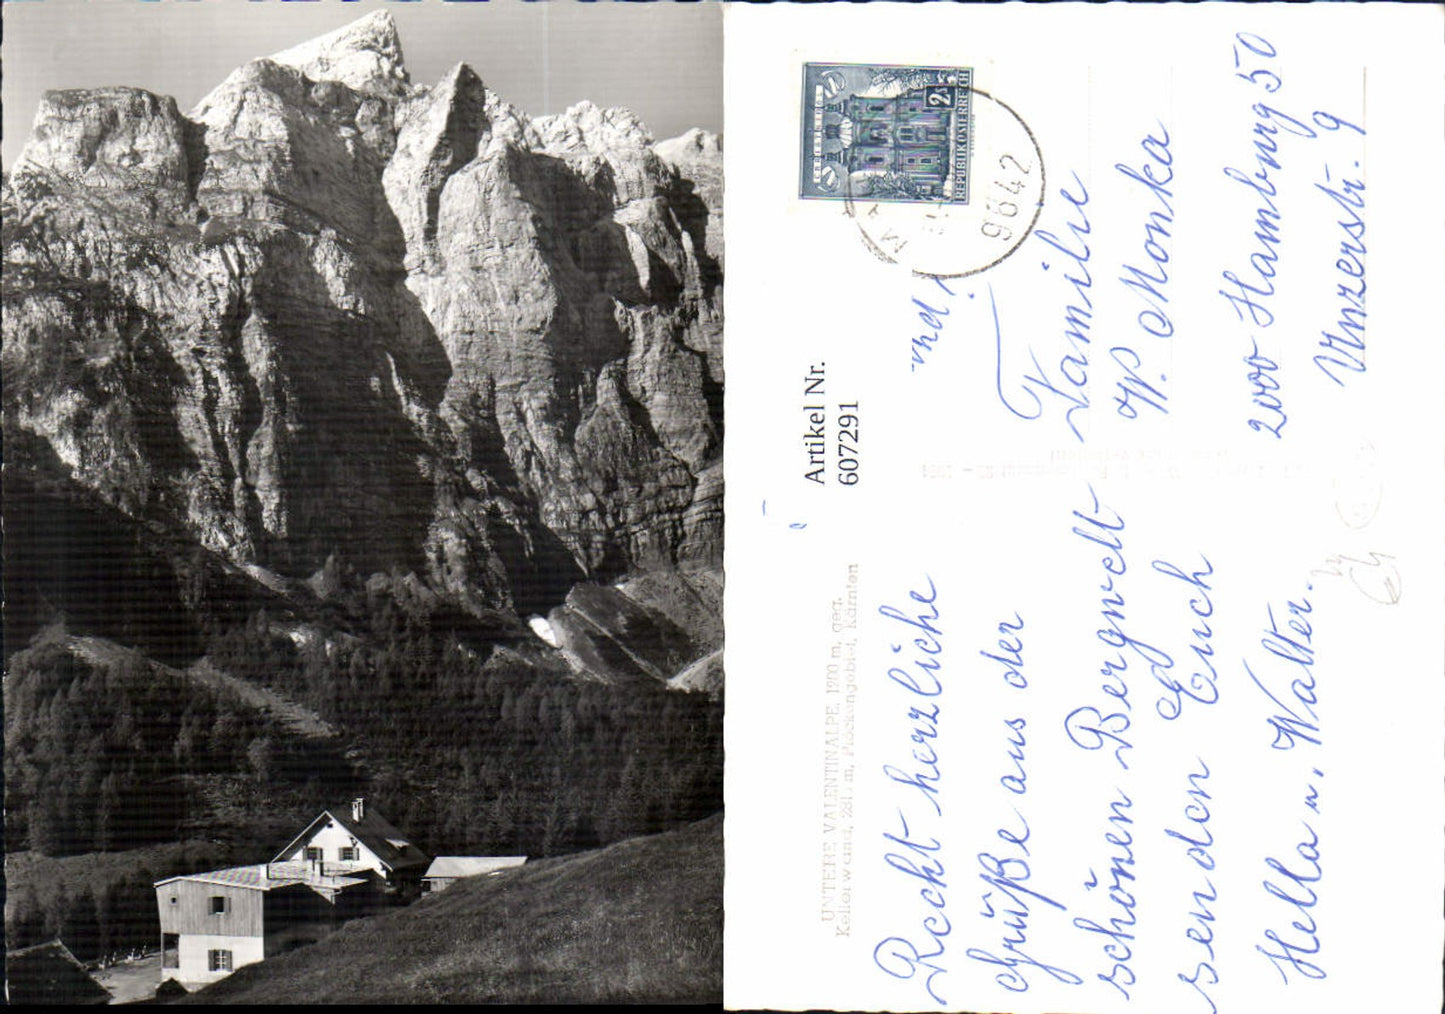 UNTERE VALENTINALPE, 1200 m, geg.
Kellerwand, Plöckengebiet, Kärnten
Artikel Nr.
607291
CHRISTKINDL
2S
REPUBLIK ÖSTERREICH
9642
Recht herzliche
Grüße aus der
schönen Bergwelt
senden Euch
Hella u. Walter.
Familie
W. Monka
2000 Hamburg 50
Unzerstr. 9